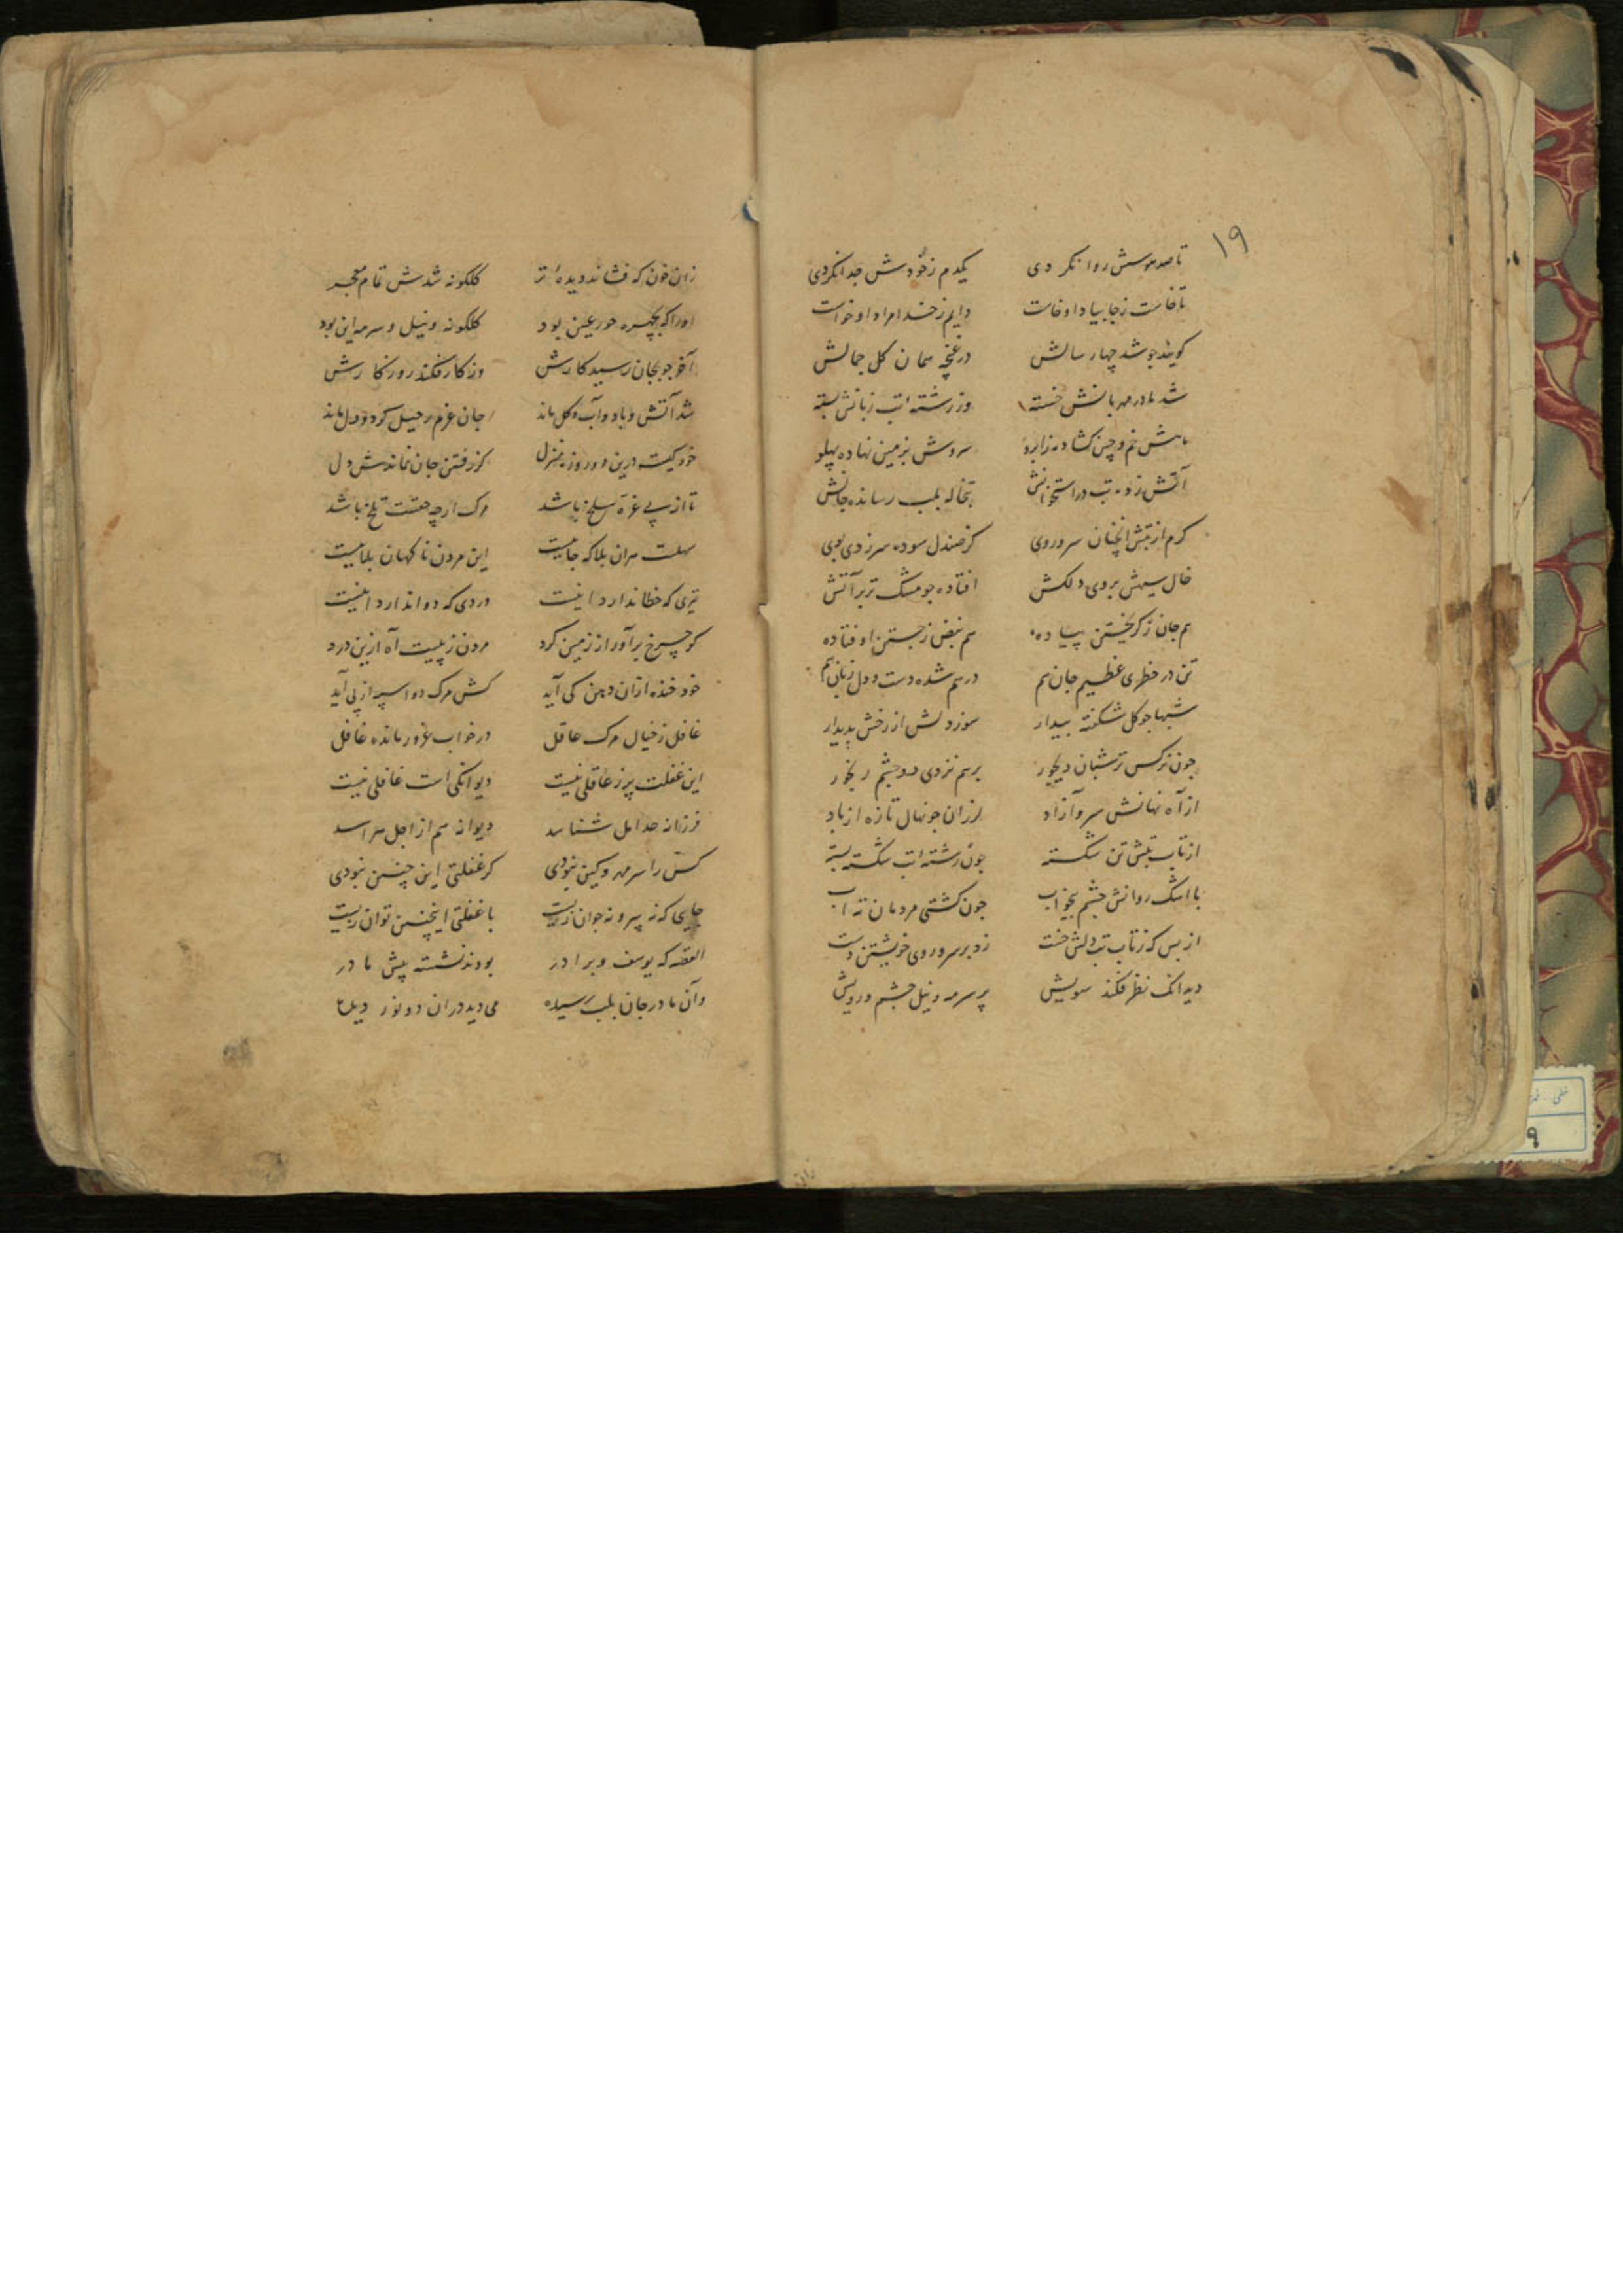 ۱۹
تا صد هوسش روا نکردی یکدم ز خودش جدا نکردی
تا خاست ز جا بپا او خاست دایم ز خدا مراد او خواست
کویند جو شد چهار سالش در غنچه همان کل جمالش
شد مادر مهربانش خسته وز رشته تب زبانش بسته
خم و چین کشاده ز ابرو سروش بزمین نهاده پهلو
آتش زده تب در استخوانش تبخاله بلب رسانده جانش
کرم از تبش انچنان سر و روی کز صندل سوده سر زدی بوی
خال سیهش بروی دلکش افتاده جو مشک تر بر آتش
هم جان ز کریختن پیاده هم نبض ز جستن او فتاده
تن در خطری عظیم جان هم درهم شده دست و دل زبان هم
شبها جو کل شکفته بیدار سوز دلش از رخش پدیدار
جون نرکس تر شبان دیجور برهم نزدی دو چشم رنجور
از آه نهانش سرو آزاد لرزان جو نهال تازه از باد
از تاب تبش تن شکسته جون رشته تب شکسته بسته
با اشک روانش جشم بیخواب جون کشتی مردمان ته آب
از بس که ز تاب تب دلش خست زد بر سر و روی خویشتن دست
دید انک نظر فکند سویش پر سرمه و نیل جشم و رویش
زان خون که فشاند دیده تر کلکونه شدش تمام معجر
اورا که بچهره حور عین بود کلکونه و نیل و سرمه این بود
آخر جو بجان رسید کارش وز کار فکند روزکارش
شد آتش و باد و آب و کل ماند جان عزم رحیل کرد و دل ماند
خود کیست درین دو روزه منزل کز رفتن جان نماندش دل
تا از پی غره سلخ باشد مرک ارچه حقست تلخ باشد
سهلست هران بلا که جاییست این مردن ناکهان بلاییست
تیری که خطا ندارد اینست دردی که دوا ندارد اینست
کو چرخ برآور از زمین کرد مردن ز پیست آه ازین درد
خود خنده ازان دهن کی آید کش مرک دو اسپه از پی آید
غافل ز خیال مرک عاقل در خواب غرور مانده غافل
این غفلت پر ز عاقلی نیست دیوانکی است غافلی نیست
فرزانه حد امل شناسد دیوانه هم از اجل هراسد
کس را سر مهر و کین نبودی کر غفلتی این چنین نبودی
جایی که نه پیر و نه جوان زیست با غفلتی اینچنین توان زیست
القصه که یوسف و برادر بودند نشسته پیش مادر
وآن مادر جان بلب رسیده می دید دران دو نور دیده